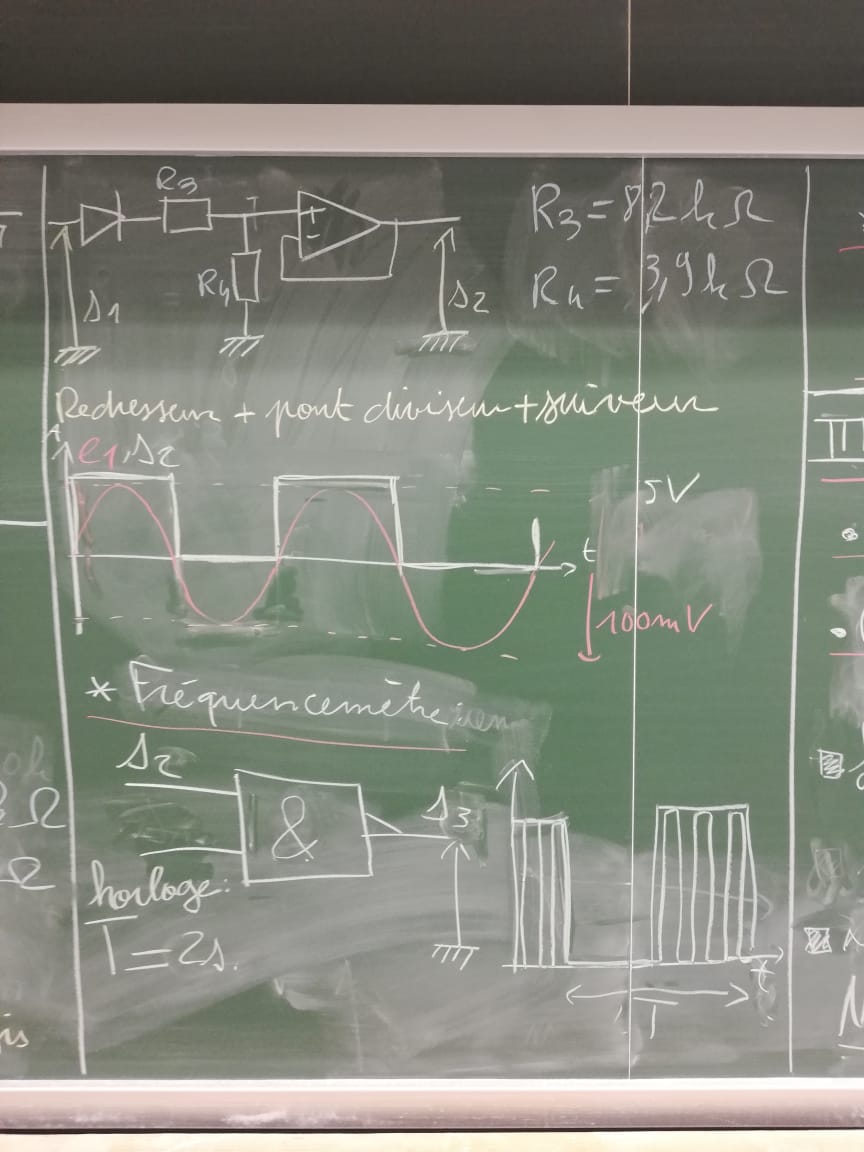 R3
R3 = 8,2 kΩ
R4
R4 = 3,9 kΩ
+
-
s1
s2
Redresseur + pont diviseur + suiveur
e1, s2
5V
t
100mV
* Fréquencemètre
s2
&
s3
horloge:
T = 2s.
t
T
Ω
Ω